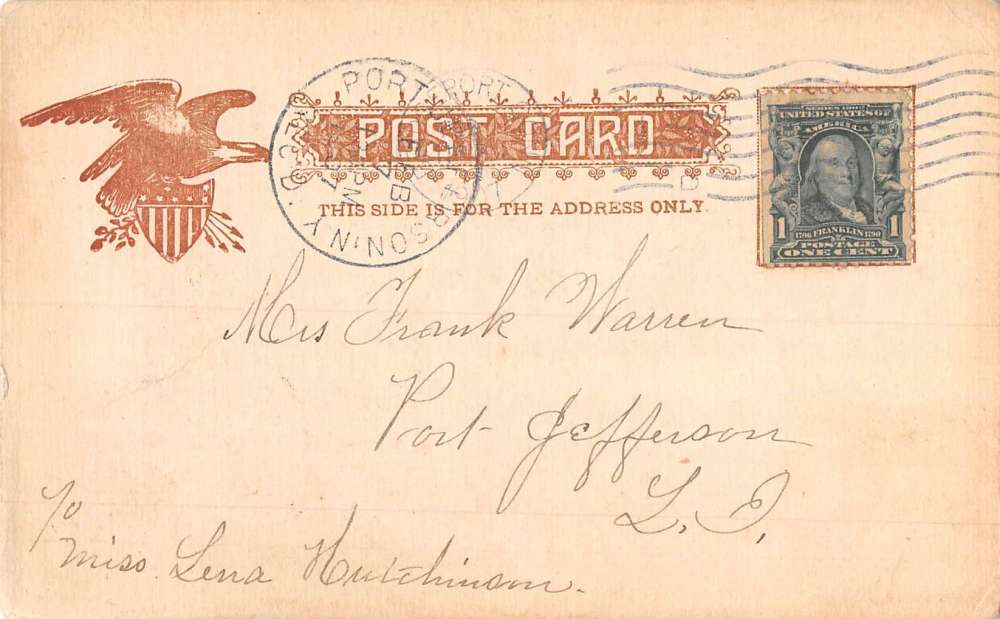 POST CARD
THIS SIDE IS FOR THE ADDRESS ONLY.
PORT JEFFERSON N.Y.
FEB
PM
REC'D.
PORT
SERIES 1902
UNITED STATES OF
AMERICA
1706 FRANKLIN 1790
POSTAGE
1 ONE CENT 1
Mrs Frank Warren
Port Jefferson
L.I.
c/o
Miss Lena Hutchinson.